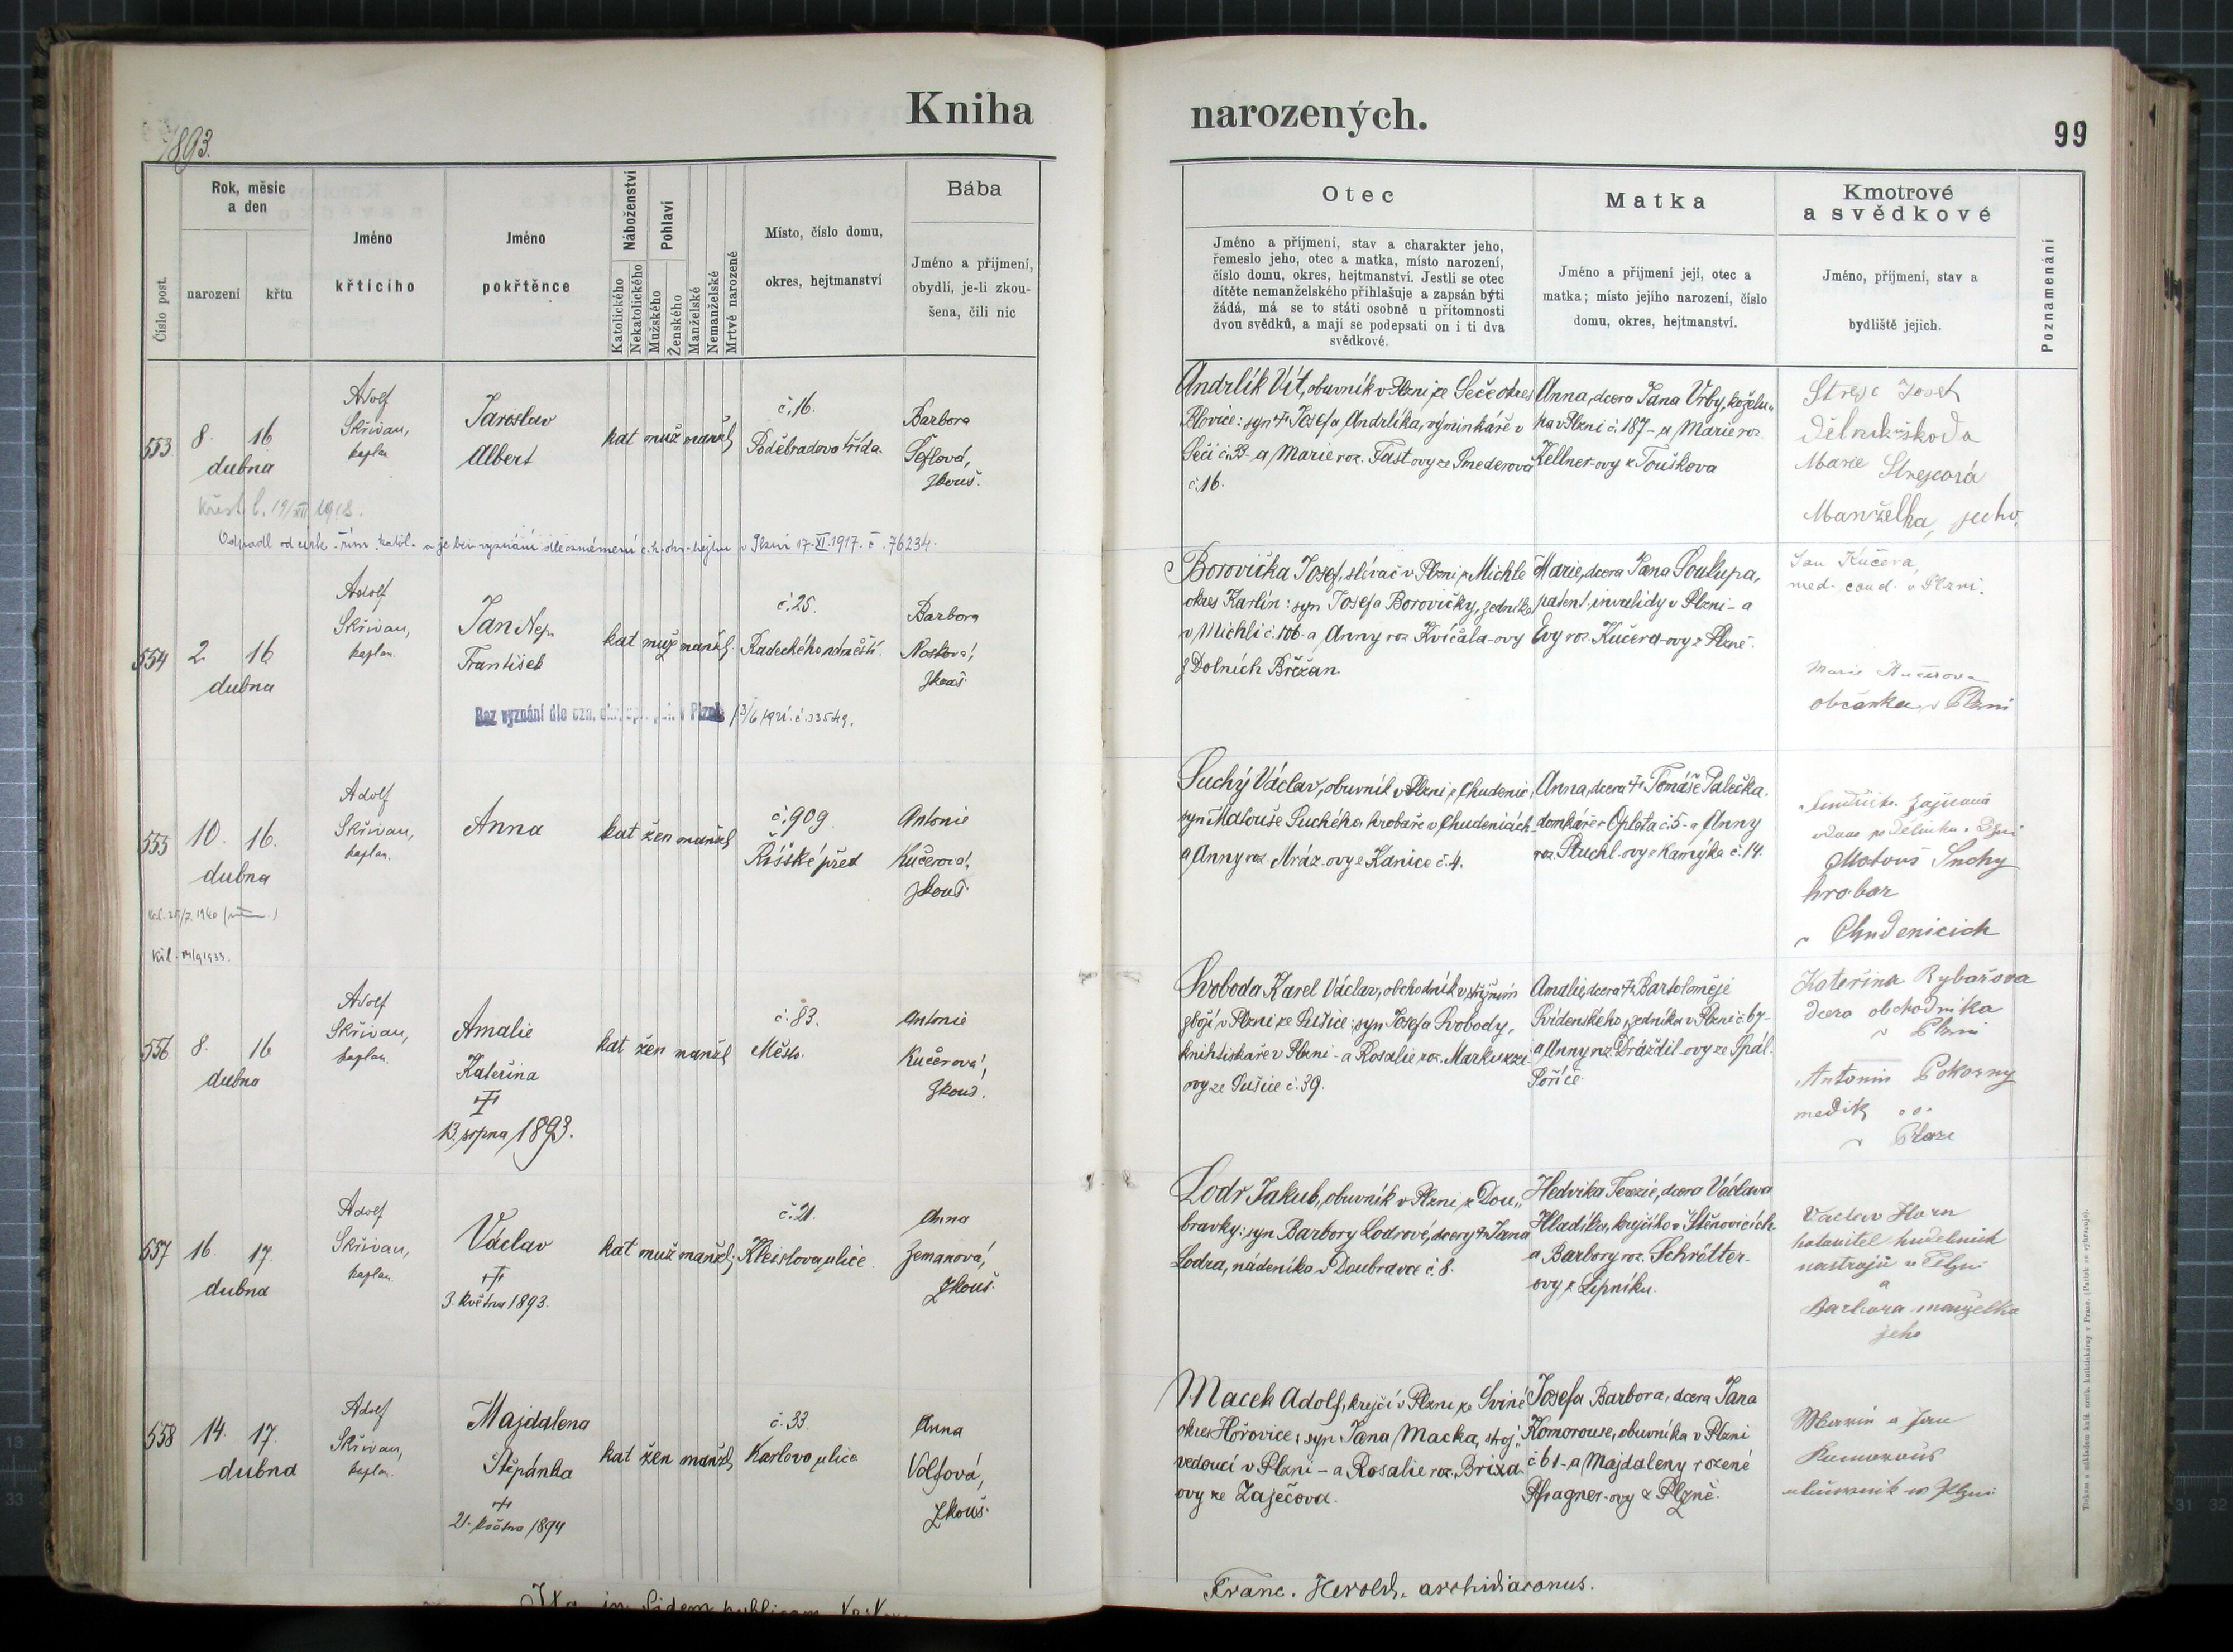 Kniha narozených.
1893.
99
Číslo post.
Rok, měsíc
a den
narození
křtu
Jméno
křtícího
Jméno
pokřtěnce
Náboženství
Katolického
Nekatolického
Pohlaví
Mužského
Ženského
Manželské
Nemanželské
Mrtvě narozené
Místo, číslo domu,
okres, hejtmanství
Bába
Jméno a přijmení,
obydlí, je-li zkou-
šena, čili nic
Otec
Jméno a příjmení, stav a charakter jeho,
řemeslo jeho, otec a matka, místo narození,
číslo domu, okres, hejtmanství. Jestli se otec
dítěte nemanželského přihlašuje a zapsán býti
žádá, má se to státi osobně u přítomnosti
dvou svědků, a mají se podepsati on i ti dva
svědkové.
Matka
Jméno a přijmení její, otec a
matka; místo jejího narození, číslo
domu, okres, hejtmanství.
Kmotrové
a svědkové
Jméno, příjmení, stav a
bydliště jejich.
Poznamenání
553
8. 16
dubna
Adolf
Skřivan,
kaplan
Jaroslav
Albert
kat muž manžel
č. 16.
Poděbradova třída.
Barbora
Šeflová,
zkouš.
Andrlík Vít, obuvník v Plzni ze Seče okres
Blovice: syn Josefa Andrlíka, výminkáře v
Seči č. 33 - a Marie roz. Fast-ovy ze Smederova
č. 16.
Anna, dcera Jana Vrby, koželu„
ha v Plzni č. 187 - a Marie roz.
Kellner-ovy z Touškova
Strejc Josef
Dělník škoda
Marie Strejcová
Manželka jeho
Křest. l. 19/XII 1918.
Odpadl od církve řím. katol. a je bez vyznání dle oznámení c. k. okr. hejtm. v Plzni 17. XI. 1917. č. 76234.
554
2 16
dubna
Adolf
Skřivan,
kaplan.
Jan Nep.
František
kat muž manžel.
č. 25.
Radeckého náměstí.
Barbora
Nosková,
zkouš.
Borovička Josef, slévač v Plzni z Michle
okres Karlín: syn Josefa Borovičky, zedníka
v Michli č. 106 - a Anny roz. Kvíčala-ovy
z Dolních Břežan.
Marie, dcera Jana Soukupa,
patent. invalidy v Plzni - a
Evy roz. Kučera-ovy z Plzně.
Jan Kučera,
med. cand. v Plzni.
Marie Kučerova
občanka v Plzni
Bez vyznání dle ozn. okr. v Plzni 13/6 1921. č. 33549.
555
10. 16.
dubna
Adolf
Skřivan,
kaplan.
Anna
kat žen manžel
č. 909
Říšské před
Antonie
Kučerová,
zkouš.
Suchý Václav, obuvník v Plzni z Chudenic,
syn Matouše Suchého, hrobaře v Chudenicích -
a Anny roz. Mráz-ovy z Kanice č. 4.
Anna, dcera Tomáše Palečka,
domkáře z Oplota č. 5 - a Anny
roz. Stuchl-ovy z Kamýka č. 14.
Matouš Suchy
hrobar
v Chudenicich
556
8. 16
dubna
Adolf
Skřivan,
kaplan.
Amalie
Kateřina
13. srpna 1893.
kat žen manžel
č. 83.
Město.
Antonie
Kučerová,
zkouš.
Svoboda Karel Václav, obchodník v střižním
zboží v Plzni ze Sušice: syn Josefa Svobody,
knihtiskaře v Plzni - a Rosalie roz. Markuzzi-
ovy ze Sušice č. 39.
Amalie, dcera Bartoloměje
Svídenského, zedníka v Plzni č. 67 -
a Anny roz. Dráždil-ovy ze Spál.
Poříčí.
Kateřina Rybařova
dcera obchodníka
v Plzni
Antonín Pokorny
medik
v Praze
557
16. 17.
dubna
Adolf
Skřivan,
kaplan.
Václav
3. května 1893.
kat muž manžel.
č. 21.
Kleislova ulice.
Anna
Zemanová,
zkouš.
Lodr Jakub, obuvník v Plzni z Dou„
bravky: syn Barbory Lodrové, dcery Jana
Lodra, nádeníka v Doubravce č. 8.
Hedvika Terezie, dcera Václava
Hladíka, krejčího v Štěnovicích
a Barbory roz. Schrötter-
ovy z Lipníku.
Vaclav Horn
hotovitel hudebnich
nastrojů v Plzni
a
Barbora manželka
jeho
558
14. 17.
dubna
Adolf
Skřivan,
kaplan.
Majdalena
Štěpánka
21. května 1894
kat žen manžel
č. 33.
Karlova ulice
Anna
Volfová,
zkouš.
Macek Adolf, krejčí v Plzni ze Sviné
okres Hořovice: syn Jana Macka, stroj„
vedoucí v Plzni - a Rosalie roz. Brixa-
ovy ze Zaječova.
Josefa Barbora, dcera Jana
Komorouse, obuvníka v Plzni
č. 61 - a Majdaleny rozené
Pfragner-ovy z Plzně.
Franc. Herold, archidiaconus.